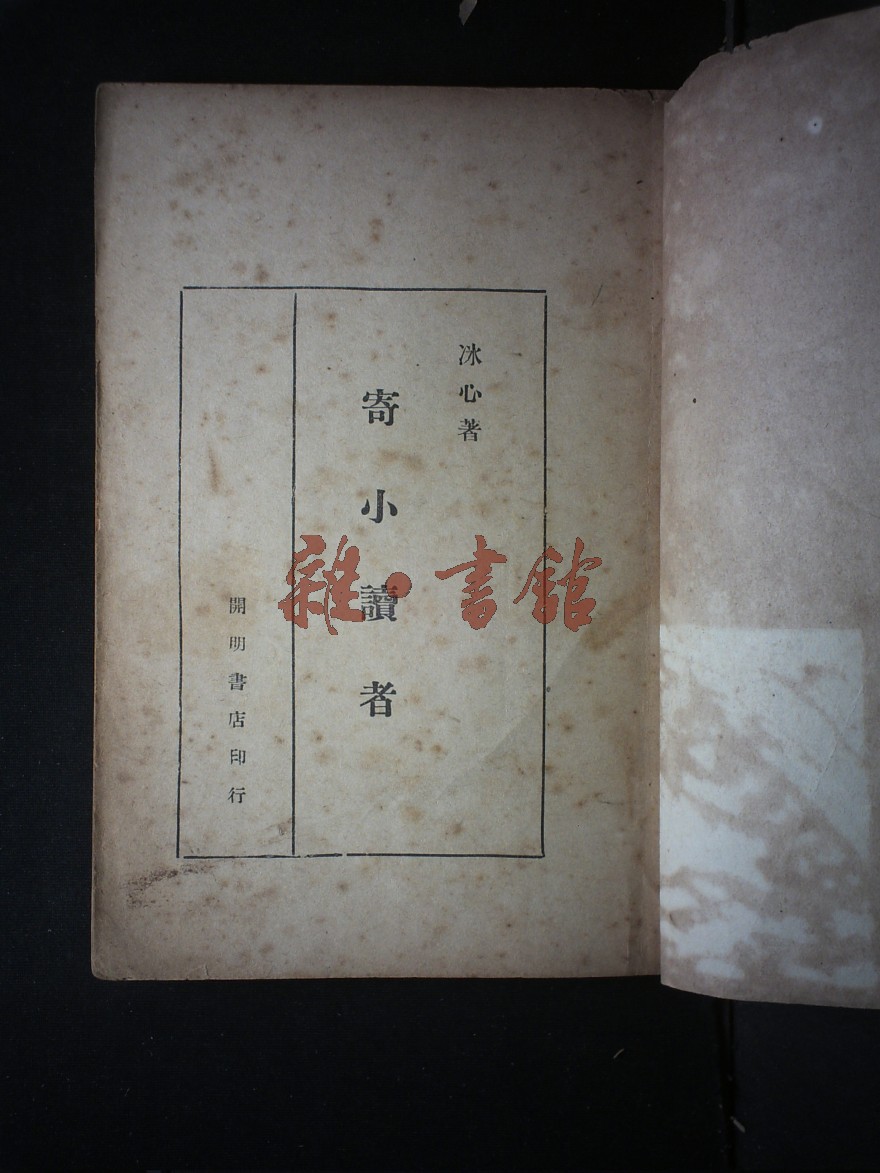 冰心著
寄小讀者
開明書店印行
雜·書館